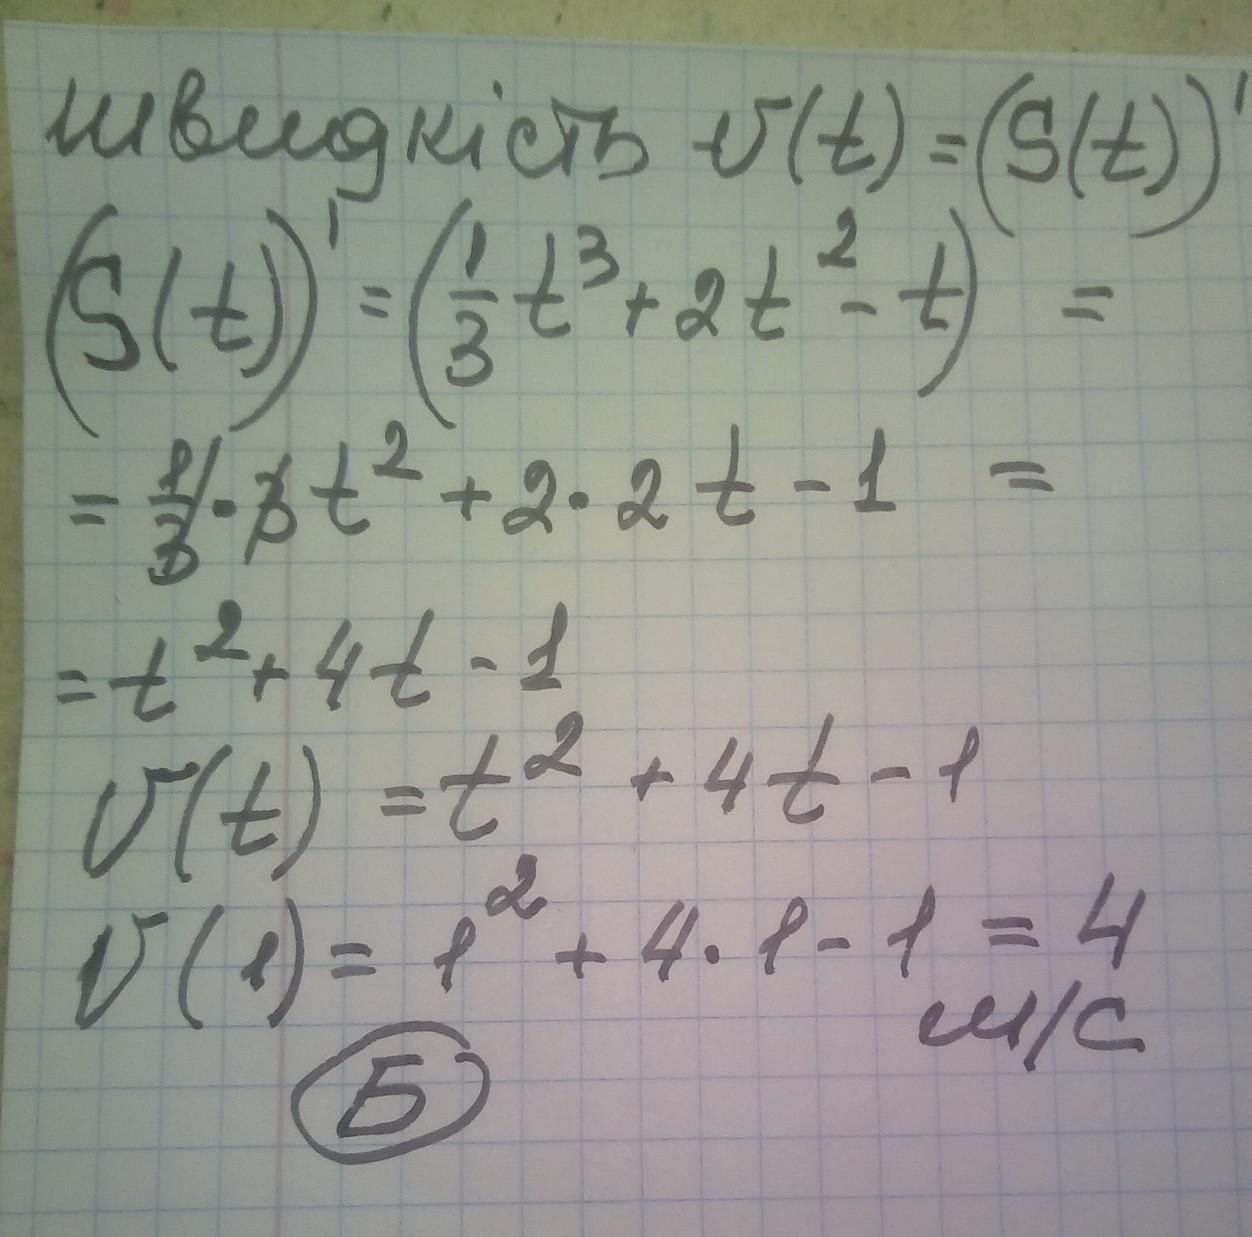 швидкість v(t)=(S(t))'
(S(t))' = (1/3 t³ + 2t² - t) =
= 1/3 · 3t² + 2·2t - 1 =
= t² + 4t - 1
v(t) = t² + 4t - 1
v(1) = 1² + 4·1 - 1 = 4
м/с
Б